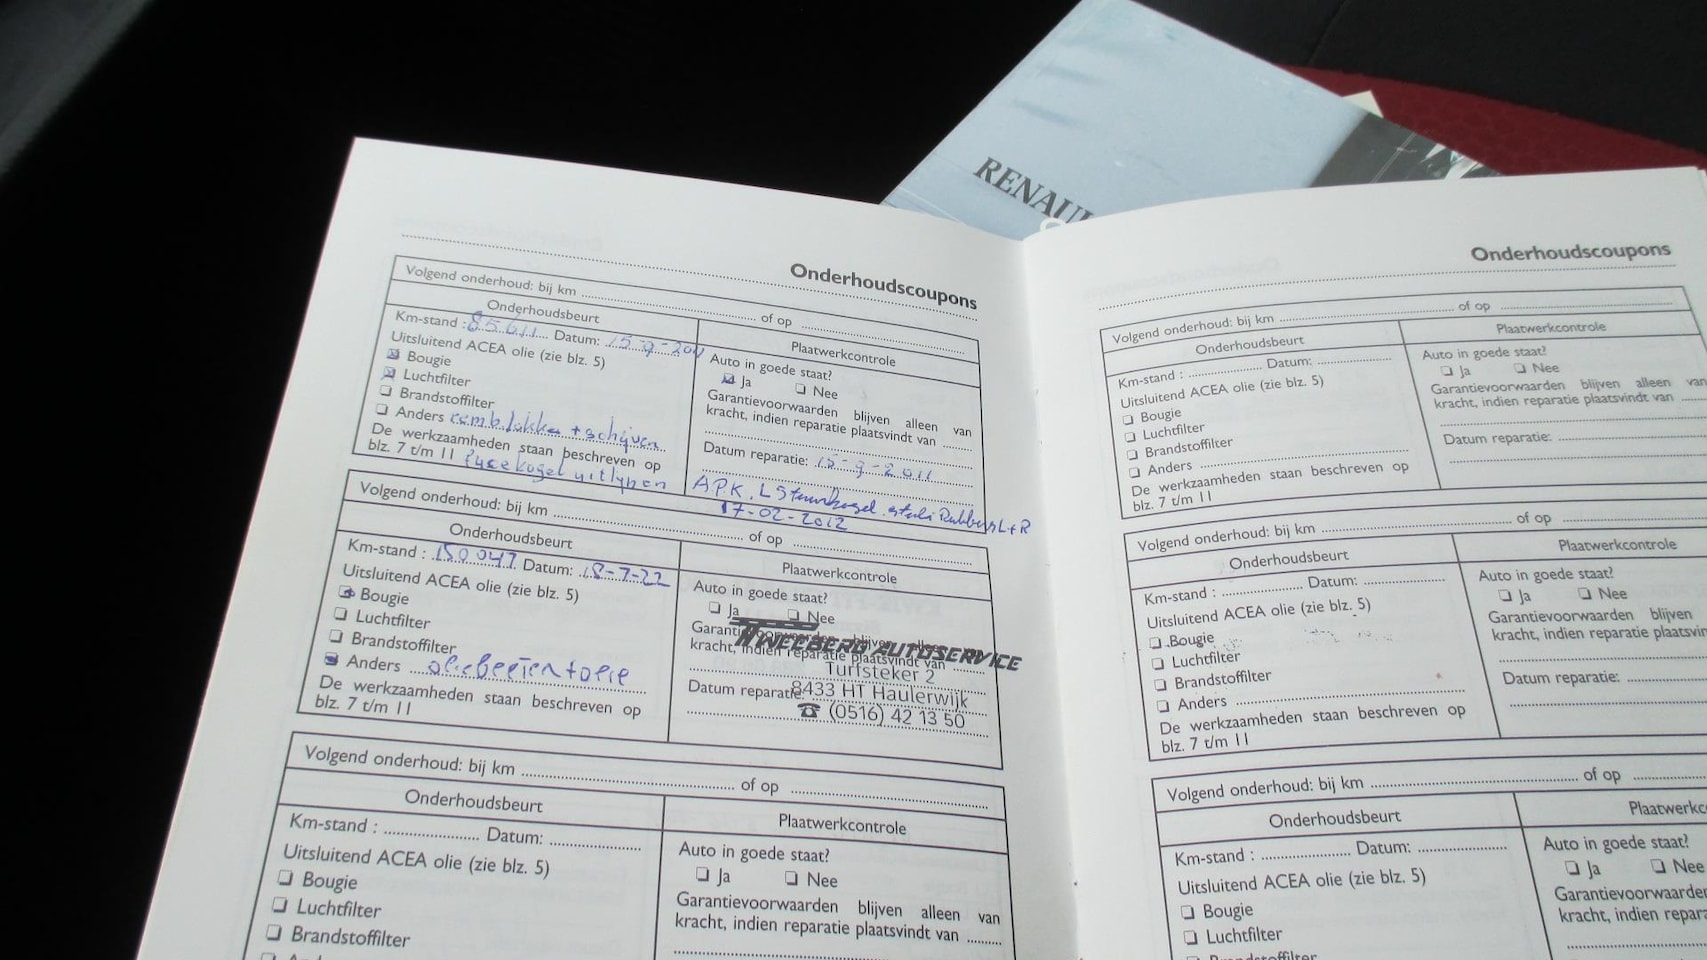 RENAUL
Onderhoudscoupons
Volgend onderhoud: bij km of op
Onderhoudsbeurt
Km-stand : 85611 Datum: 15-9-2011
Uitsluitend ACEA olie (zie blz. 5)
Bougie
Luchtfilter
Brandstoffilter
Anders remblokken + schijven
De werkzaamheden staan beschreven op
blz. 7 t/m 11 fuseekogel uitlijnen
Plaatwerkcontrole
Auto in goede staat?
Ja Nee
Garantievoorwaarden blijven alleen van
kracht, indien reparatie plaatsvindt van
Datum reparatie: 15-9-2011
APK. L Stuurkogel. stabi Rubbers L+R
17-02-2012
Volgend onderhoud: bij km of op
Onderhoudsbeurt
Km-stand : 150047 Datum: 18-7-22
Uitsluitend ACEA olie (zie blz. 5)
Bougie
Luchtfilter
Brandstoffilter
Anders
De werkzaamheden staan beschreven op
blz. 7 t/m 11
Plaatwerkcontrole
Auto in goede staat?
Ja Nee
Garantievoorwaarden blijven alleen
kracht, indien reparatie plaatsvindt van
Datum reparatie:
TWEEBERG AUTOSERVICE
Turfsteker 2
8433 HT Haulerwijk
☎ (0516) 42 13 50
Volgend onderhoud: bij km of op
Onderhoudsbeurt
Km-stand : Datum:
Uitsluitend ACEA olie (zie blz. 5)
Bougie
Luchtfilter
Brandstoffilter
Plaatwerkcontrole
Auto in goede staat?
Ja Nee
Garantievoorwaarden blijven alleen van
kracht, indien reparatie plaatsvindt van
Onderhoudscoupons
Volgend onderhoud: bij km of op
Onderhoudsbeurt
Km-stand : Datum:
Uitsluitend ACEA olie (zie blz. 5)
Bougie
Luchtfilter
Brandstoffilter
Anders
De werkzaamheden staan beschreven op
blz. 7 t/m 11
Plaatwerkcontrole
Auto in goede staat?
Ja Nee
Garantievoorwaarden blijven alleen van
kracht, indien reparatie plaatsvindt van
Datum reparatie:
Volgend onderhoud: bij km of op
Onderhoudsbeurt
Km-stand : Datum:
Uitsluitend ACEA olie (zie blz. 5)
Bougie
Luchtfilter
Brandstoffilter
Anders
De werkzaamheden staan beschreven op
blz. 7 t/m 11
Plaatwerkcontrole
Auto in goede staat?
Ja Nee
Garantievoorwaarden blijven
kracht, indien reparatie plaatsvin
Datum reparatie:
Volgend onderhoud: bij km of op
Onderhoudsbeurt
Km-stand : Datum:
Uitsluitend ACEA olie (zie blz. 5)
Bougie
Luchtfilter
Plaatwerkc
Auto in goede staat?
Ja Nee
Garantievoorwaarden
kracht, indien repara